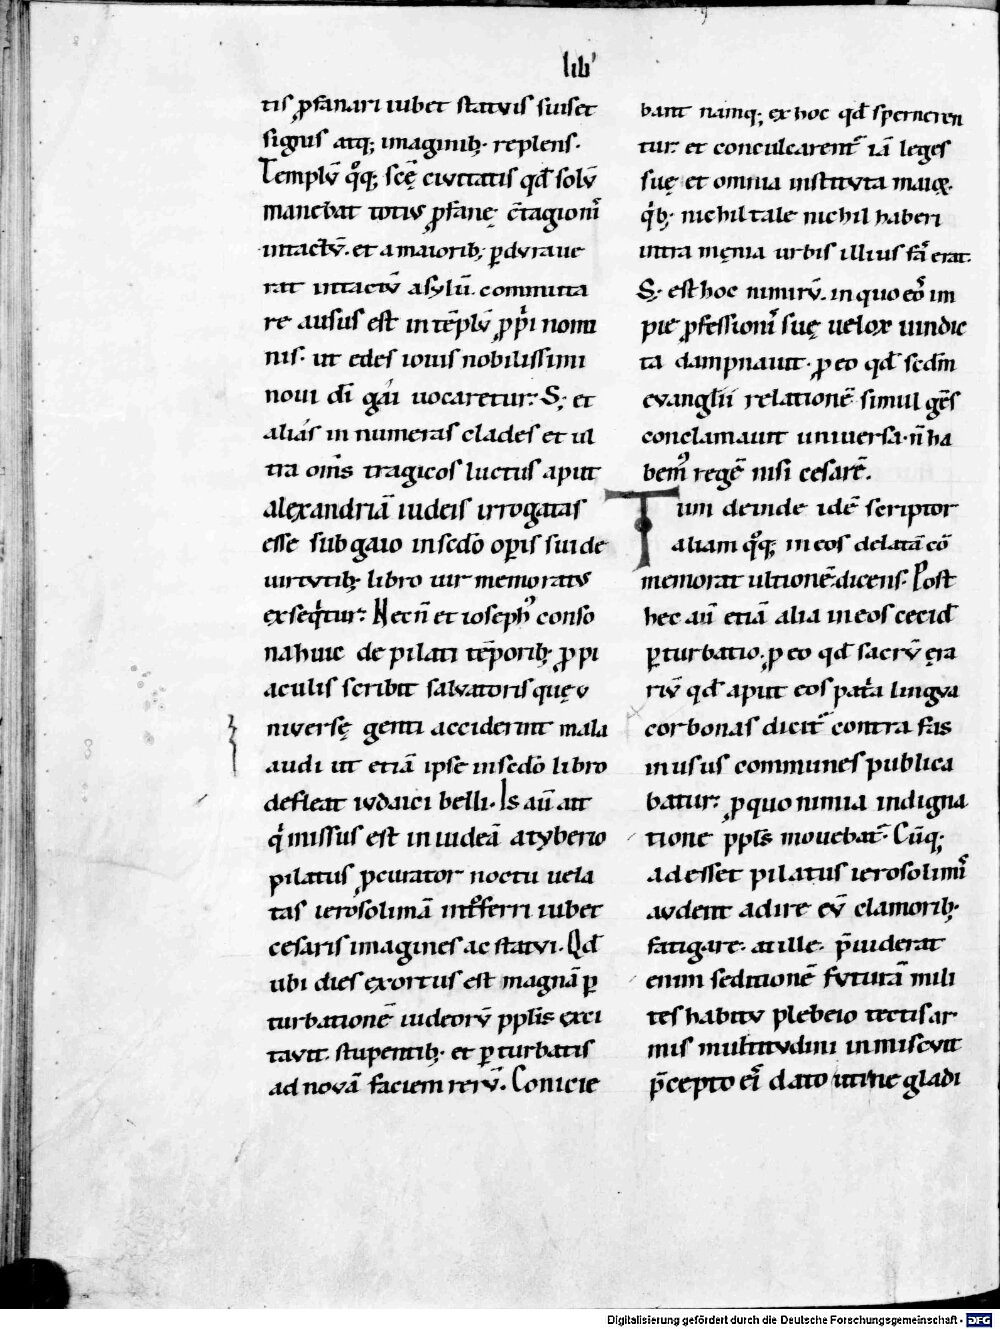 lib'
tis ꝓfanari iubet statuis suis et
signis atq; imaginib; replens.
Templū qͦq; scē ciuitatis qd̄ solū
manebat totiꝰ ꝓfanę c̄tagioniˢ
intactū. et a maiorib; ꝑduraue
rat intactū asylū. committa
re ausus est in tēplū ꝓpri nomi
nis. ut edes iouis nobilissimi
noui di̅ gaii uocaretur. S; et
alias in numeras clades et ul
tra om̄s tragicos luctus aput
alexandriā iudeis irrogatas
esse sub gaio in scd̄o opis sui de
uirtutib; libro uir memoratus
exseq̇tur. Necn̄ et ioseph᾽ conso
na huic de pilati tēporib; ꝓ pi
aculis scribit saluatoris quę u
niuersę genti acciderint mala
audi ut etiā ipse in scd̄o libro
defleat iudaici belli. Is au̅ ait
q̇ missus est in iudeā a tyberio
pilatus ꝓcurator noctu uela
tas ierosolimā intͦferri iubet
cesaris imagines ac statui. Qd̄
ubi dies exortus est magnā ꝑ
turbationē iudeorū ppl̄is exci
tauit. stupentib; et ꝑturbatis
ad nouā faciem rerū. Conicie
bant namq; ex hoc qd̄ sperneren
tur. et conculcarent᷑ iā leges
suę et omnia instituta maioꝝ.
q̇b; nichil tale nichil haberi
intra męnia urbis illius fas̄ erat.
S; est hoc nimirū. in quo eoͬ im
pie ꝓfessioniˢ suę uelox uindic
ta dampnauit. ꝓ eo qd̄ scdm̄
euanglii relationē simul gēs
conclamauit uniuersa. n̄ ha
bem᾽ regē nisi cesarē.
Tum deinde idē scriptor
aliam qͦq; in eos delatā eō
memorat ultionē. dicens. Post
hec au̅ etiā alia in eos cecid̄
ꝑturbatio. ꝓ eo qd̄ sacrū ęra
riū qd̄ aput eos pat̄a lingua
corbonas dicit᷑ contra fas
in usus communes publica
batur. ꝓ quo nimia indigna
tione ppl̄s mouebat᷑. Cūq;
adesset pilatus ierosolimiˢ
audent adire eū clamorib;
fatigare. at ille. p̄uiderat
enim seditionē futurā mili
tes habitu plebeio tectis ar
mis multitudini inmiscuit
p̄cepto eiˢ dato uti ne gladi
Digitalisierung gefördert durch die Deutsche Forschungsgemeinschaft - DFG